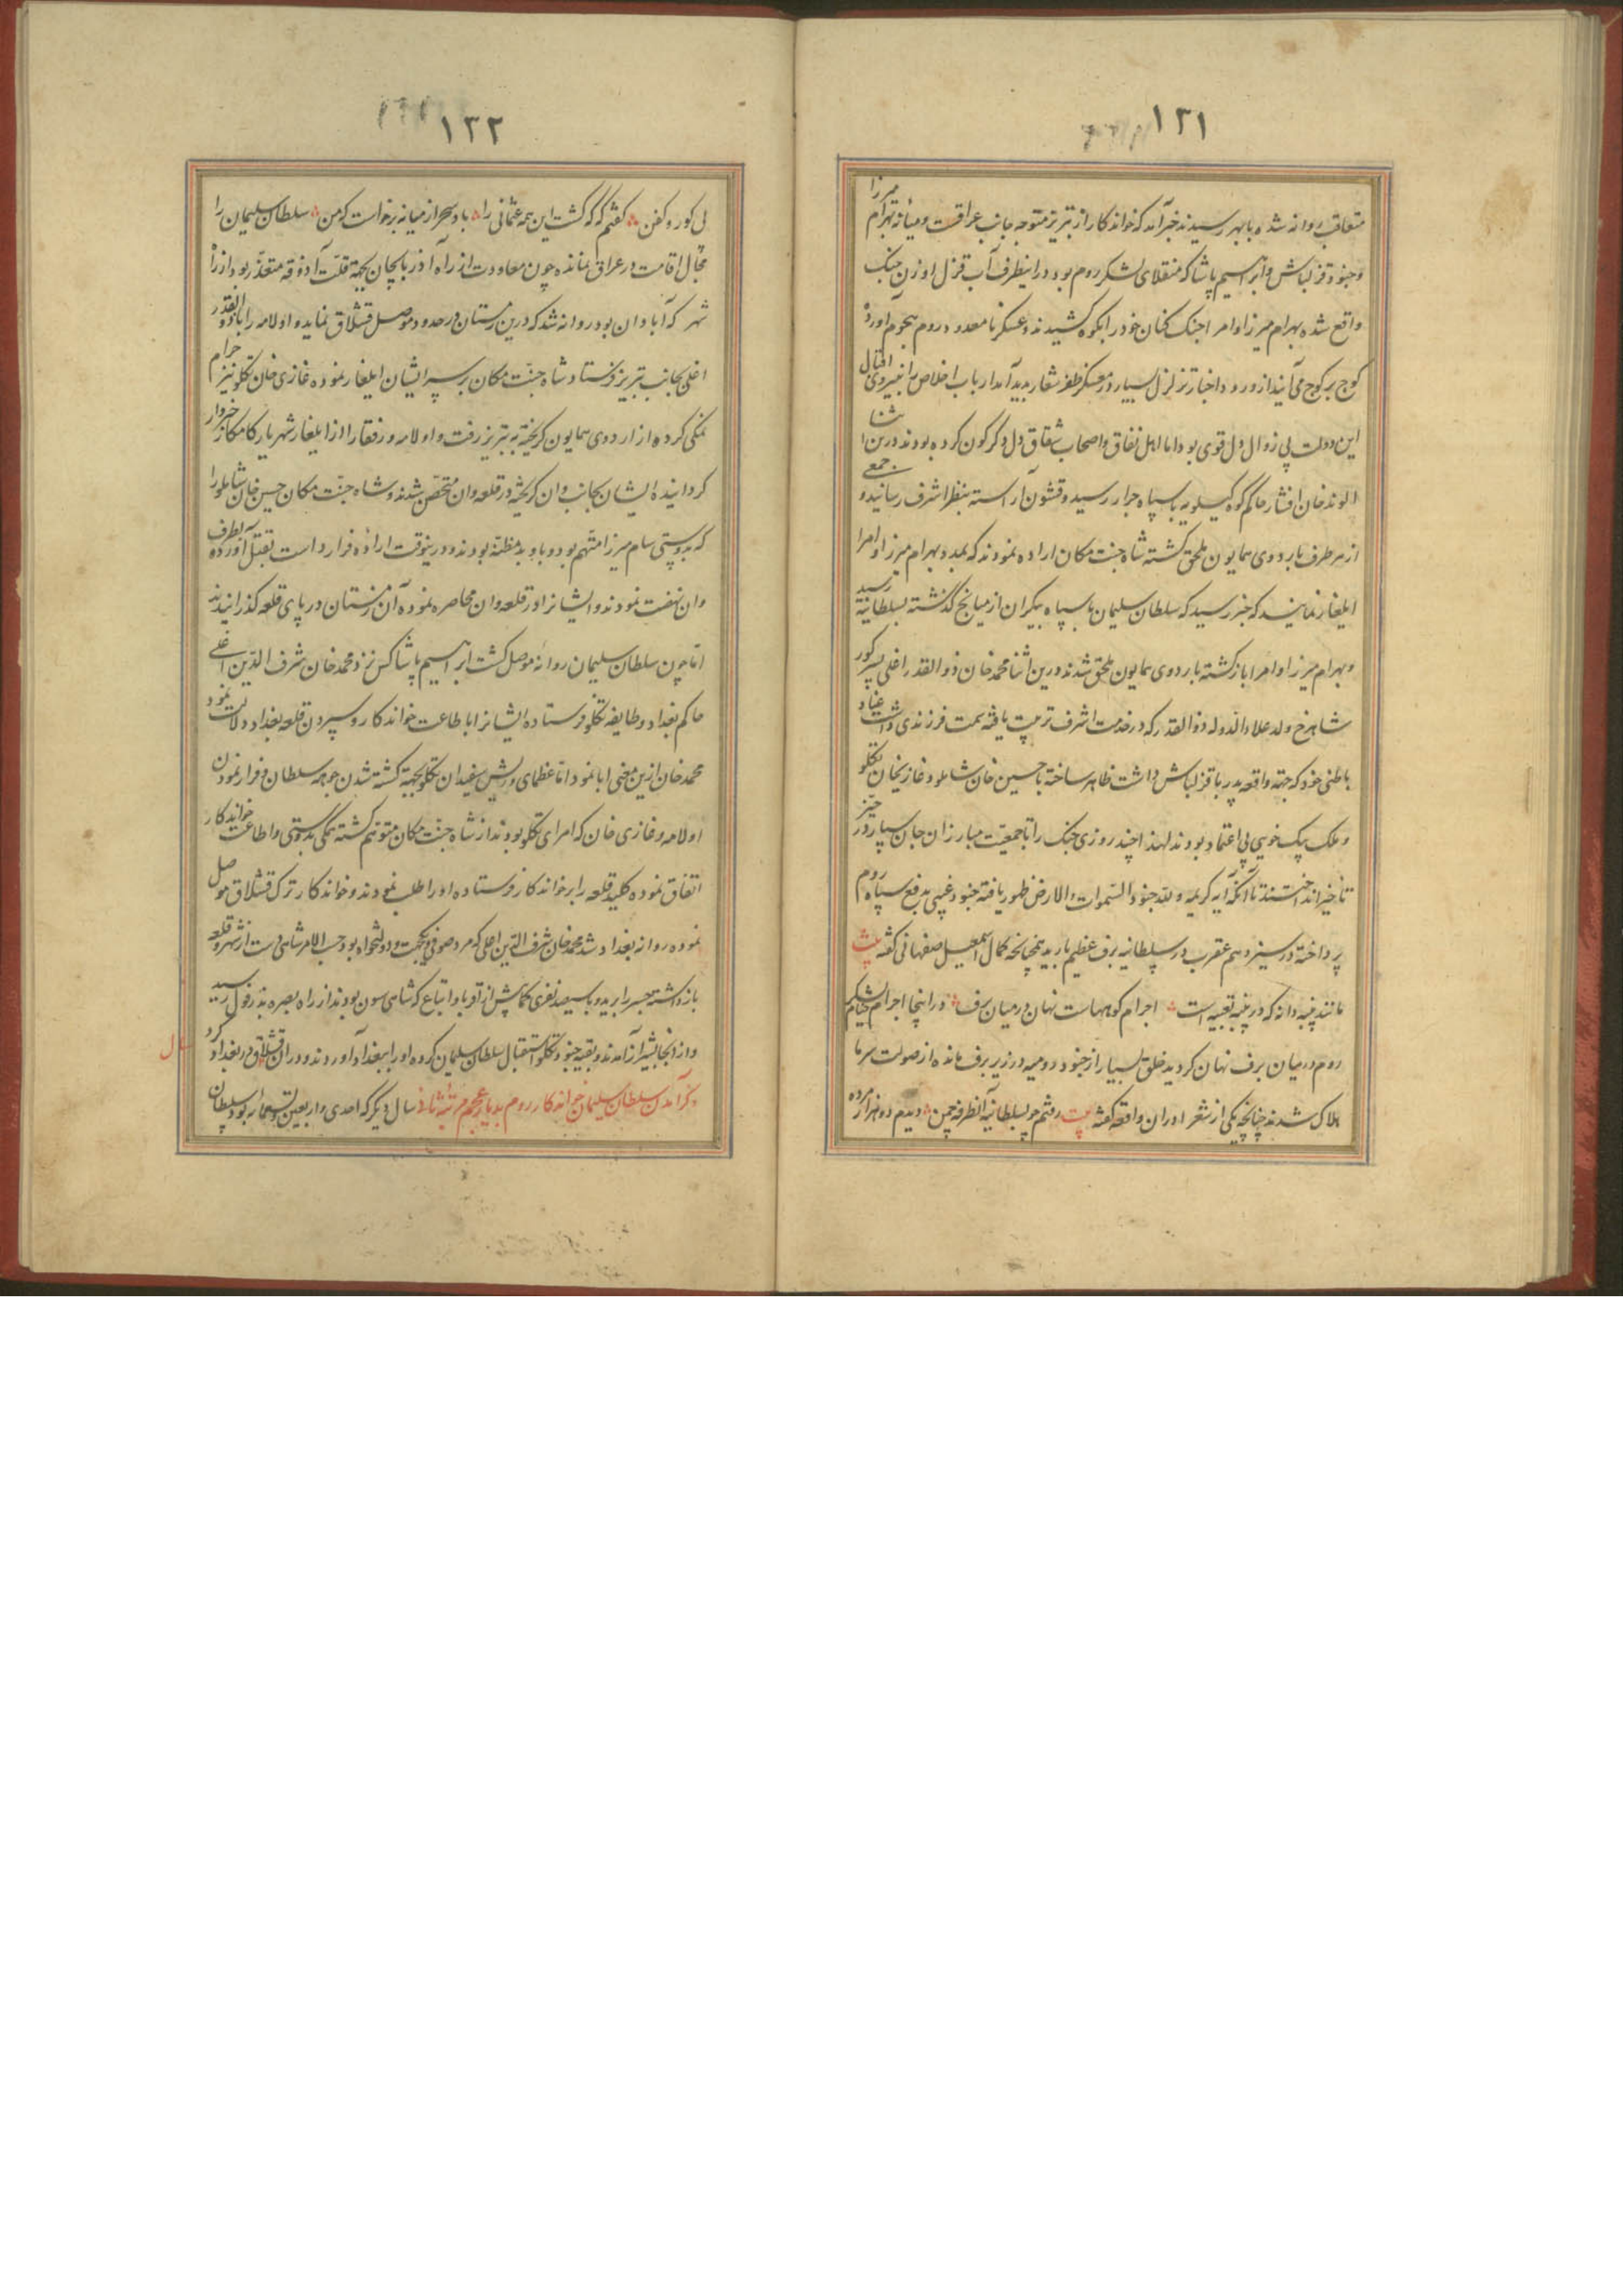 ۱۳۱
متعاقب روانه شده بابهر رسیدند خبر آمد که خواندکار از تبریز متوجه جانب عراقست و میانه بهرام میرزا
و جنود قزلباش و ابراهیم پاشا که منقلای لشکر روم بود در اینطرف آب قزل اوزن جنک
واقع شده بهرام میرزا و امرا جنک کنان خود را بکوه کشیدند و عسکر نامعدود روم هجوم آورده
کوج بر کوج می آیند از ورود اخبار تزلزل بسیار در معسکر ظفر شعار پدید آمد ارباب اخلاص را نیروی اقبال
این دولت بی زوال دل قوی بود اما اهل نفاق و اصحاب شقاق دل دگرگون کرده بودند درین اثنا
الوند خان افشار حاکم کوه کیلویه با سپاه جرار رسید و قشون آراسته بنظر اشرف رسانید و جمعی
از هر طرف باردوی همایون ملحق کشته شاه جنت مکان اراده نمودند که بمدد بهرام میرزا و امرا
ایلغار نمایند که خبر رسید که سلطان سلیمان با سپاه بیکران از میانج گذشته بسلطانیه رسید
و بهرام میرزا و امرا باز کشته باردوی همایون ملحق شدند درین اثنا محمد خان ذوالقدر اغلی پسر کور
شاهرخ ولد علاء الدوله ذوالقدر که در خدمت اشرف تربیت یافته سمت فرزندی داشت عناد
باطنی خود که جهة واقعه پدر با قزلباش داشت ظاهر ساخته با حسین خان شاملو و غازیخان تکلو
و ملک بیک خویی بی اعتماد بودند لهذا چند روزی جنک را تا جمعیت مبارزان جان سپار در حیز
تاخیر انداختند تا آنکه آیه کریمه و لله جنود السموات و الارض ظهور یافته جنود غیبی بدفع سپاه روم
پرداخته در سیزدهم عقرب در سلطانیه برف عظیم بارید همچنانچه کمال اسمعیل صفهانی گفته بیت
مانند پنبه دانه که در پنبه تعبیه است اجرام کوههاست نهان در میان برف و در اینجا اجرام خیام لشکر
روم در میان برف نهان کردید خلق بسیار از جنود رومیه در زیر برف مانده از صولت سرما
هلاک شدند چنانچه یکی از شعرا در ان واقعه گفته بیت رفتم چو بسلطانیه آنطرفه چمن دیدم دو هزار مرده
۱۳۲
بی کور و کفن گفتم که که کشت این همه عثمانی را باد سحر از میانه برخاست که من سلطان سلیمان را
مجال اقامت در عراق نمانده چون معاودت از راه آذربایجان بجهة قلت آذوقه متعذر بود از راه
شهر که آبادان بود روانه شد که درین زمستان در حدود موصل قشلاق نماید و اولامه را با ذوالقدر
اغلی بجانب تبریز فرستاد شاه جنت مکان بر سر ایشان ایلغار نموده غازی خان تکلو نیز حرام
نمکی کرده از اردوی همایون کریخته به تبریز رفت و اولامه و رفقا را از ایلغار شهریار کامکار خبردار
کردانیده ایشان بجانب وان کریخته در قلعه وان متحصن شدند و شاه جنت مکان حسین خان شاملو را
که بدوستی سام میرزا متهم بود و باو بد مظنه بودند و درینوقت اراده فرار داشت بقتل آورده بطرف
وان نهضت نمودند و ایشانرا در قلعه وان محاصره نموده آن زمستان در پای قلعه گذرانیدند
اما چون سلطان سلیمان روانه موصل کشت ابراهیم پاشا کس نزد محمد خان شرف الدین اغلی
حاکم بغداد و طایفه تکلو فرستاده ایشانرا باطاعت خواندکار و سپردن قلعه بغداد دلالت نمود
محمد خان ازین معنی ابا نمود اما عظمای و ریش سفیدان تکلو بجهة کشته شدن چوهه سلطان و فرار نمودن
اولامه و غازی خان که امرای تکلو بودند از شاه جنت مکان متوهم کشته همگی بدوستی و اطاعت خواندکار
اتفاق نموده کلید قلعه را بر خواندکار فرستاده او را طلب نمودند و خواندکار ترک قشلاق موصل
نموده روانه بغداد شد محمد خان شرف الدین اغلی که مرد صوفی یکجهت و دولتخواه بود حسب الامر شاهی دست از شهر و قلعه
باز داشته جسر را برید و با سیصد نفری کمابیش از اقربا و اتباع که شاهی سون بودند از راه بصره بدزفول رسید
و از آنجا بشیراز آمدند و بقیه جنود تکلو استقبال سلطان سلیمان کرده او را ببغداد آوردند و در ان سال قشلاق در بغداد کرد
ذکر آمدن سلطان سلیمان خواندکار روم بدیار عجم مرتبه ثانی سال دیگر که احدی و اربعین و تسعمائه بود سلطان